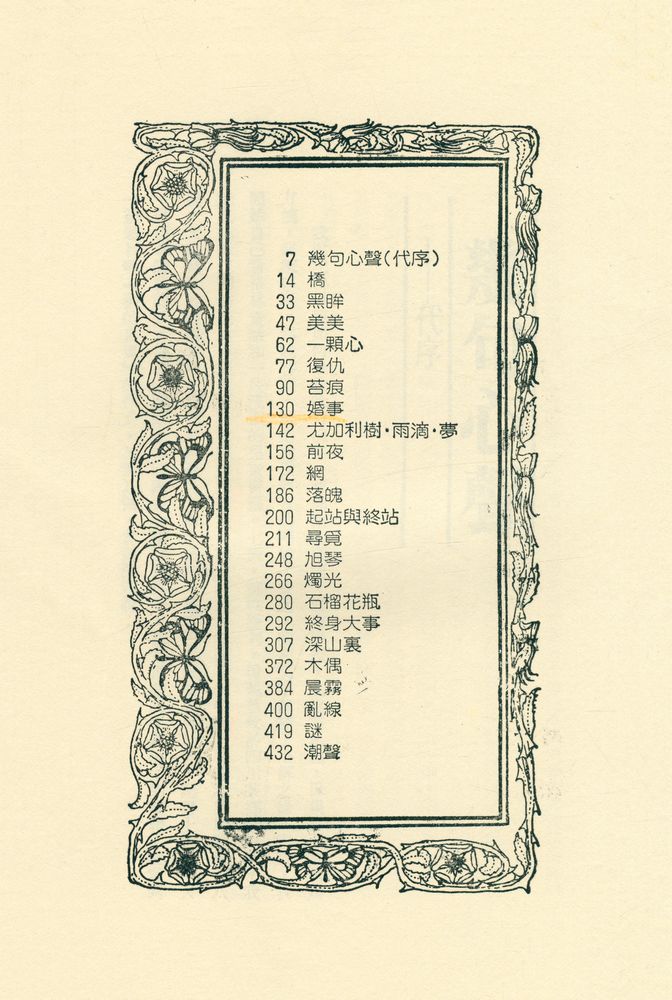 7 幾句心聲(代序)
14 橋
33 黑眸
47 美美
62 一顆心
77 復仇
90 苔痕
130 婚事
142 尤加利樹·雨滴·夢
156 前夜
172 網
186 落魄
200 起站與終站
211 尋覓
248 旭琴
266 燭光
280 石榴花瓶
292 終身大事
307 深山裏
372 木偶
384 晨霧
400 亂線
419 謎
432 潮聲